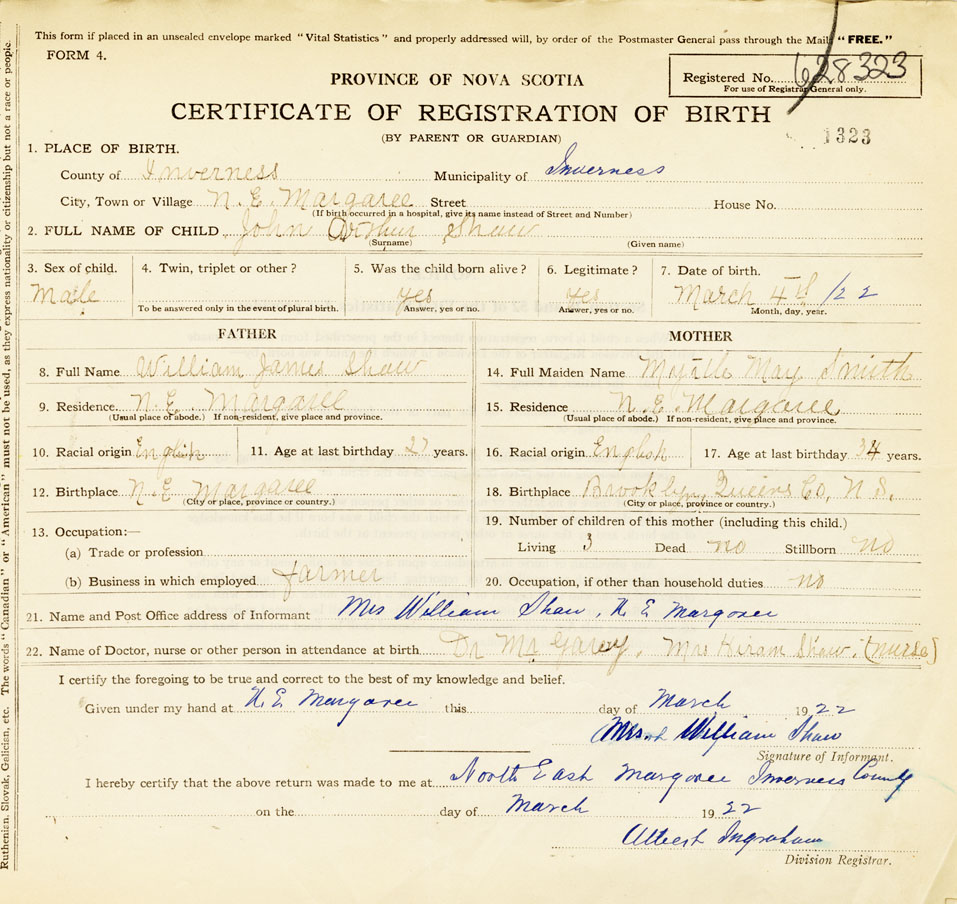 This form if placed in an unsealed envelope marked "Vital Statistics" and properly addressed will, by order of the Postmaster General pass through the Mail "FREE."
FORM 4.
PROVINCE OF NOVA SCOTIA
Registered No. 628323
For use of Registrar General only.
CERTIFICATE OF REGISTRATION OF BIRTH
(BY PARENT OR GUARDIAN)
1323
1. PLACE OF BIRTH.
County of Inverness Municipality of Inverness
City, Town or Village N. E. Margaree Street House No.
(If birth occurred in a hospital, give its name instead of Street and Number)
2. FULL NAME OF CHILD John Arthur Shaw
(Surname) (Given name)
3. Sex of child. 4. Twin, triplet or other? 5. Was the child born alive? 6. Legitimate? 7. Date of birth.
Male yes yes March 4th /22
To be answered only in the event of plural birth. Answer, yes or no. Answer, yes or no. Month, day, year.
FATHER MOTHER
8. Full Name William James Shaw 14. Full Maiden Name Myrtle May Smith
9. Residence. N. E. Margaree 15. Residence N. E. Margaree
(Usual place of abode.) If non-resident, give place and province. (Usual place of abode.) If non-resident, give place and province.
10. Racial origin English 11. Age at last birthday 27 years. 16. Racial origin English 17. Age at last birthday 34 years.
12. Birthplace N. E Margaree 18. Birthplace Brooklyn, Queens Co, N S.
(City or place, province or country.) (City or place, province or country.)
13. Occupation:— 19. Number of children of this mother (including this child.)
(a) Trade or profession Living 3 Dead no Stillborn no
(b) Business in which employed farmer 20. Occupation, if other than household duties no
21. Name and Post Office address of Informant Mrs William Shaw, N E Margaree
22. Name of Doctor, nurse or other person in attendance at birth Dr Mc Garry, Mrs Hiram Shaw. (nurse)
I certify the foregoing to be true and correct to the best of my knowledge and belief.
Given under my hand at N. E. Margaree this day of March 1922
Mrs. William Shaw
Signature of Informant.
I hereby certify that the above return was made to me at North East Margaree Inverness County
on the day of March 1922
Albert Ingraham
Division Registrar.
Ruthenian, Slovak, Galician, etc. The words "Canadian" or "American" must not be used, as they express nationality or citizenship but not a race or people.